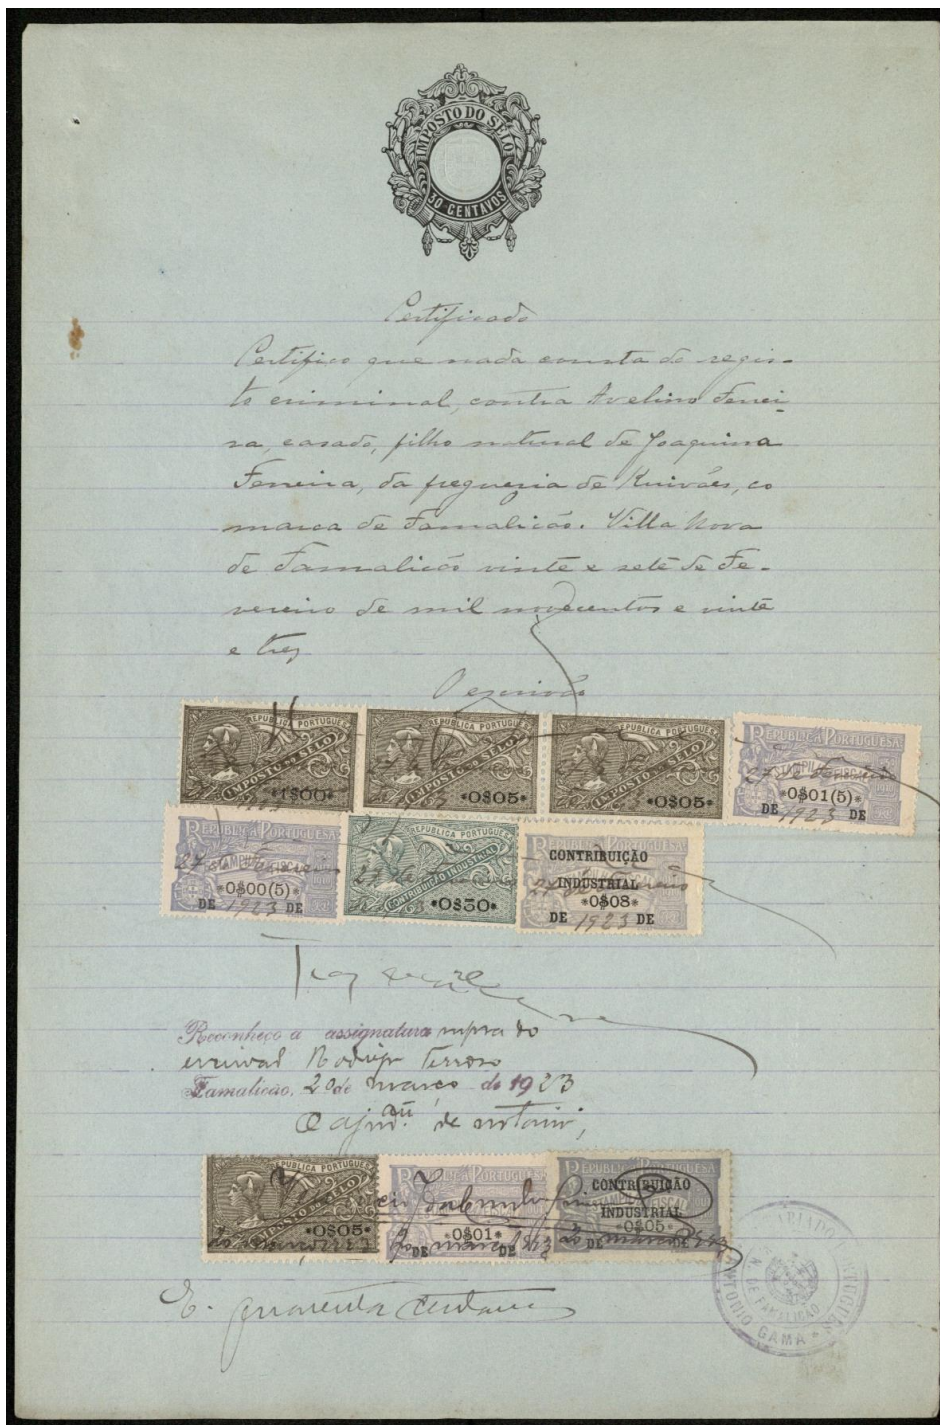 IMPOSTO DO SELO
30 CENTAVOS
Certificado
Certifico que nada consta do regis-
to criminal, contra Avelino Ferrei-
ra, casado, filho natural de Joaquina
Ferreira, da freguezia de Ruivães, co
marca de Famalicão. Villa Nova
de Famalicão vinte e sete de Fe-
vereiro de mil novecentos e vinte
e trez
O escrivão
REPUBLICA PORTUGUESA IMPOSTO DO SELO *1$00*
REPUBLICA PORTUGUESA IMPOSTO DO SELO *0$05*
REPUBLICA PORTUGUESA IMPOSTO DO SELO *0$05*
REPUBLICA PORTUGUESA ESTAMPILHA FISCAL *0$01(5)* 27 de Fevereiro DE 1923 DE
REPUBLICA PORTUGUESA ESTAMPILHA FISCAL *0$00(5)* 27 de Fevereiro DE 1923 DE
REPUBLICA PORTUGUESA CONTRIBUIÇÃO INDUSTRIAL *0$30* 27 de Fevereiro
CONTRIBUIÇÃO INDUSTRIAL *0$08* 27 de Fevereiro DE 1923 DE
Reconheço a assignatura supra do
escrivão Rodrigo Terroso
Famalicão, 20 de março de 1923
O ajud.te de notario,
REPUBLICA PORTUGUESA IMPOSTO DO SELO *0$05*
REPUBLICA PORTUGUESA *0$01* DE DE 20 março 923
REPUBLICA PORTUGUESA ESTAMPILHA FISCAL CONTRIBUIÇÃO INDUSTRIAL *0$05* DE DE 20 março 923
E. quarenta centavos
ANTONIO GAMA
DE FAMALICÃO